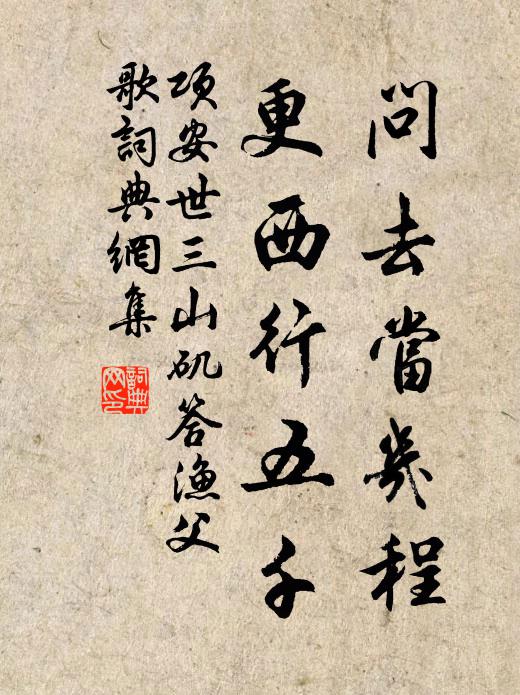 問去當幾程
更西行五千
項安世三山矶答漁父
歌詞典網集
詞典網印